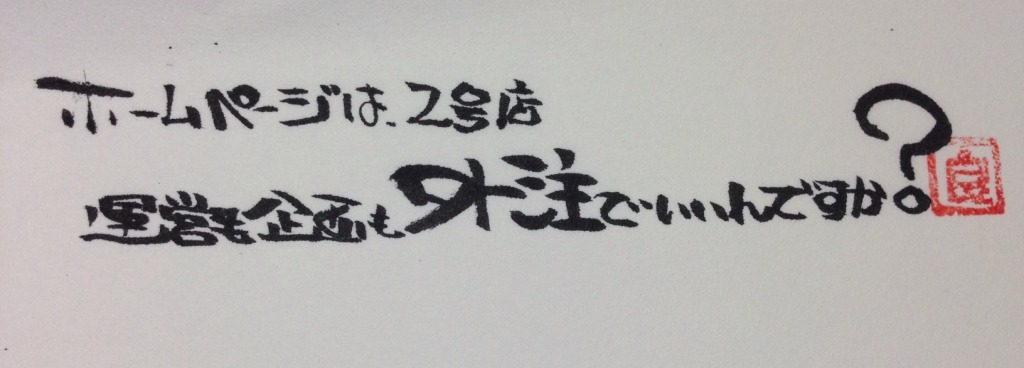 ホームページは、2号店
運営も企画も外注でいいんですか?